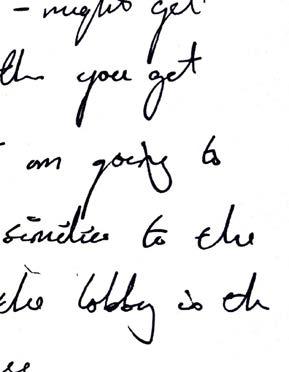 - might get
you get
am going to
similar to the
the lobby is th